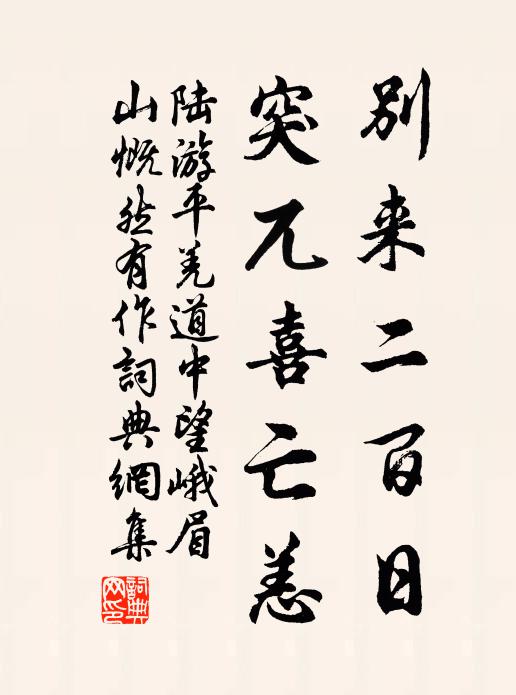 别来二百日
突兀喜亡恙
陆游平羌道中望峨眉
山慨然有作詞典網集
詞典网印